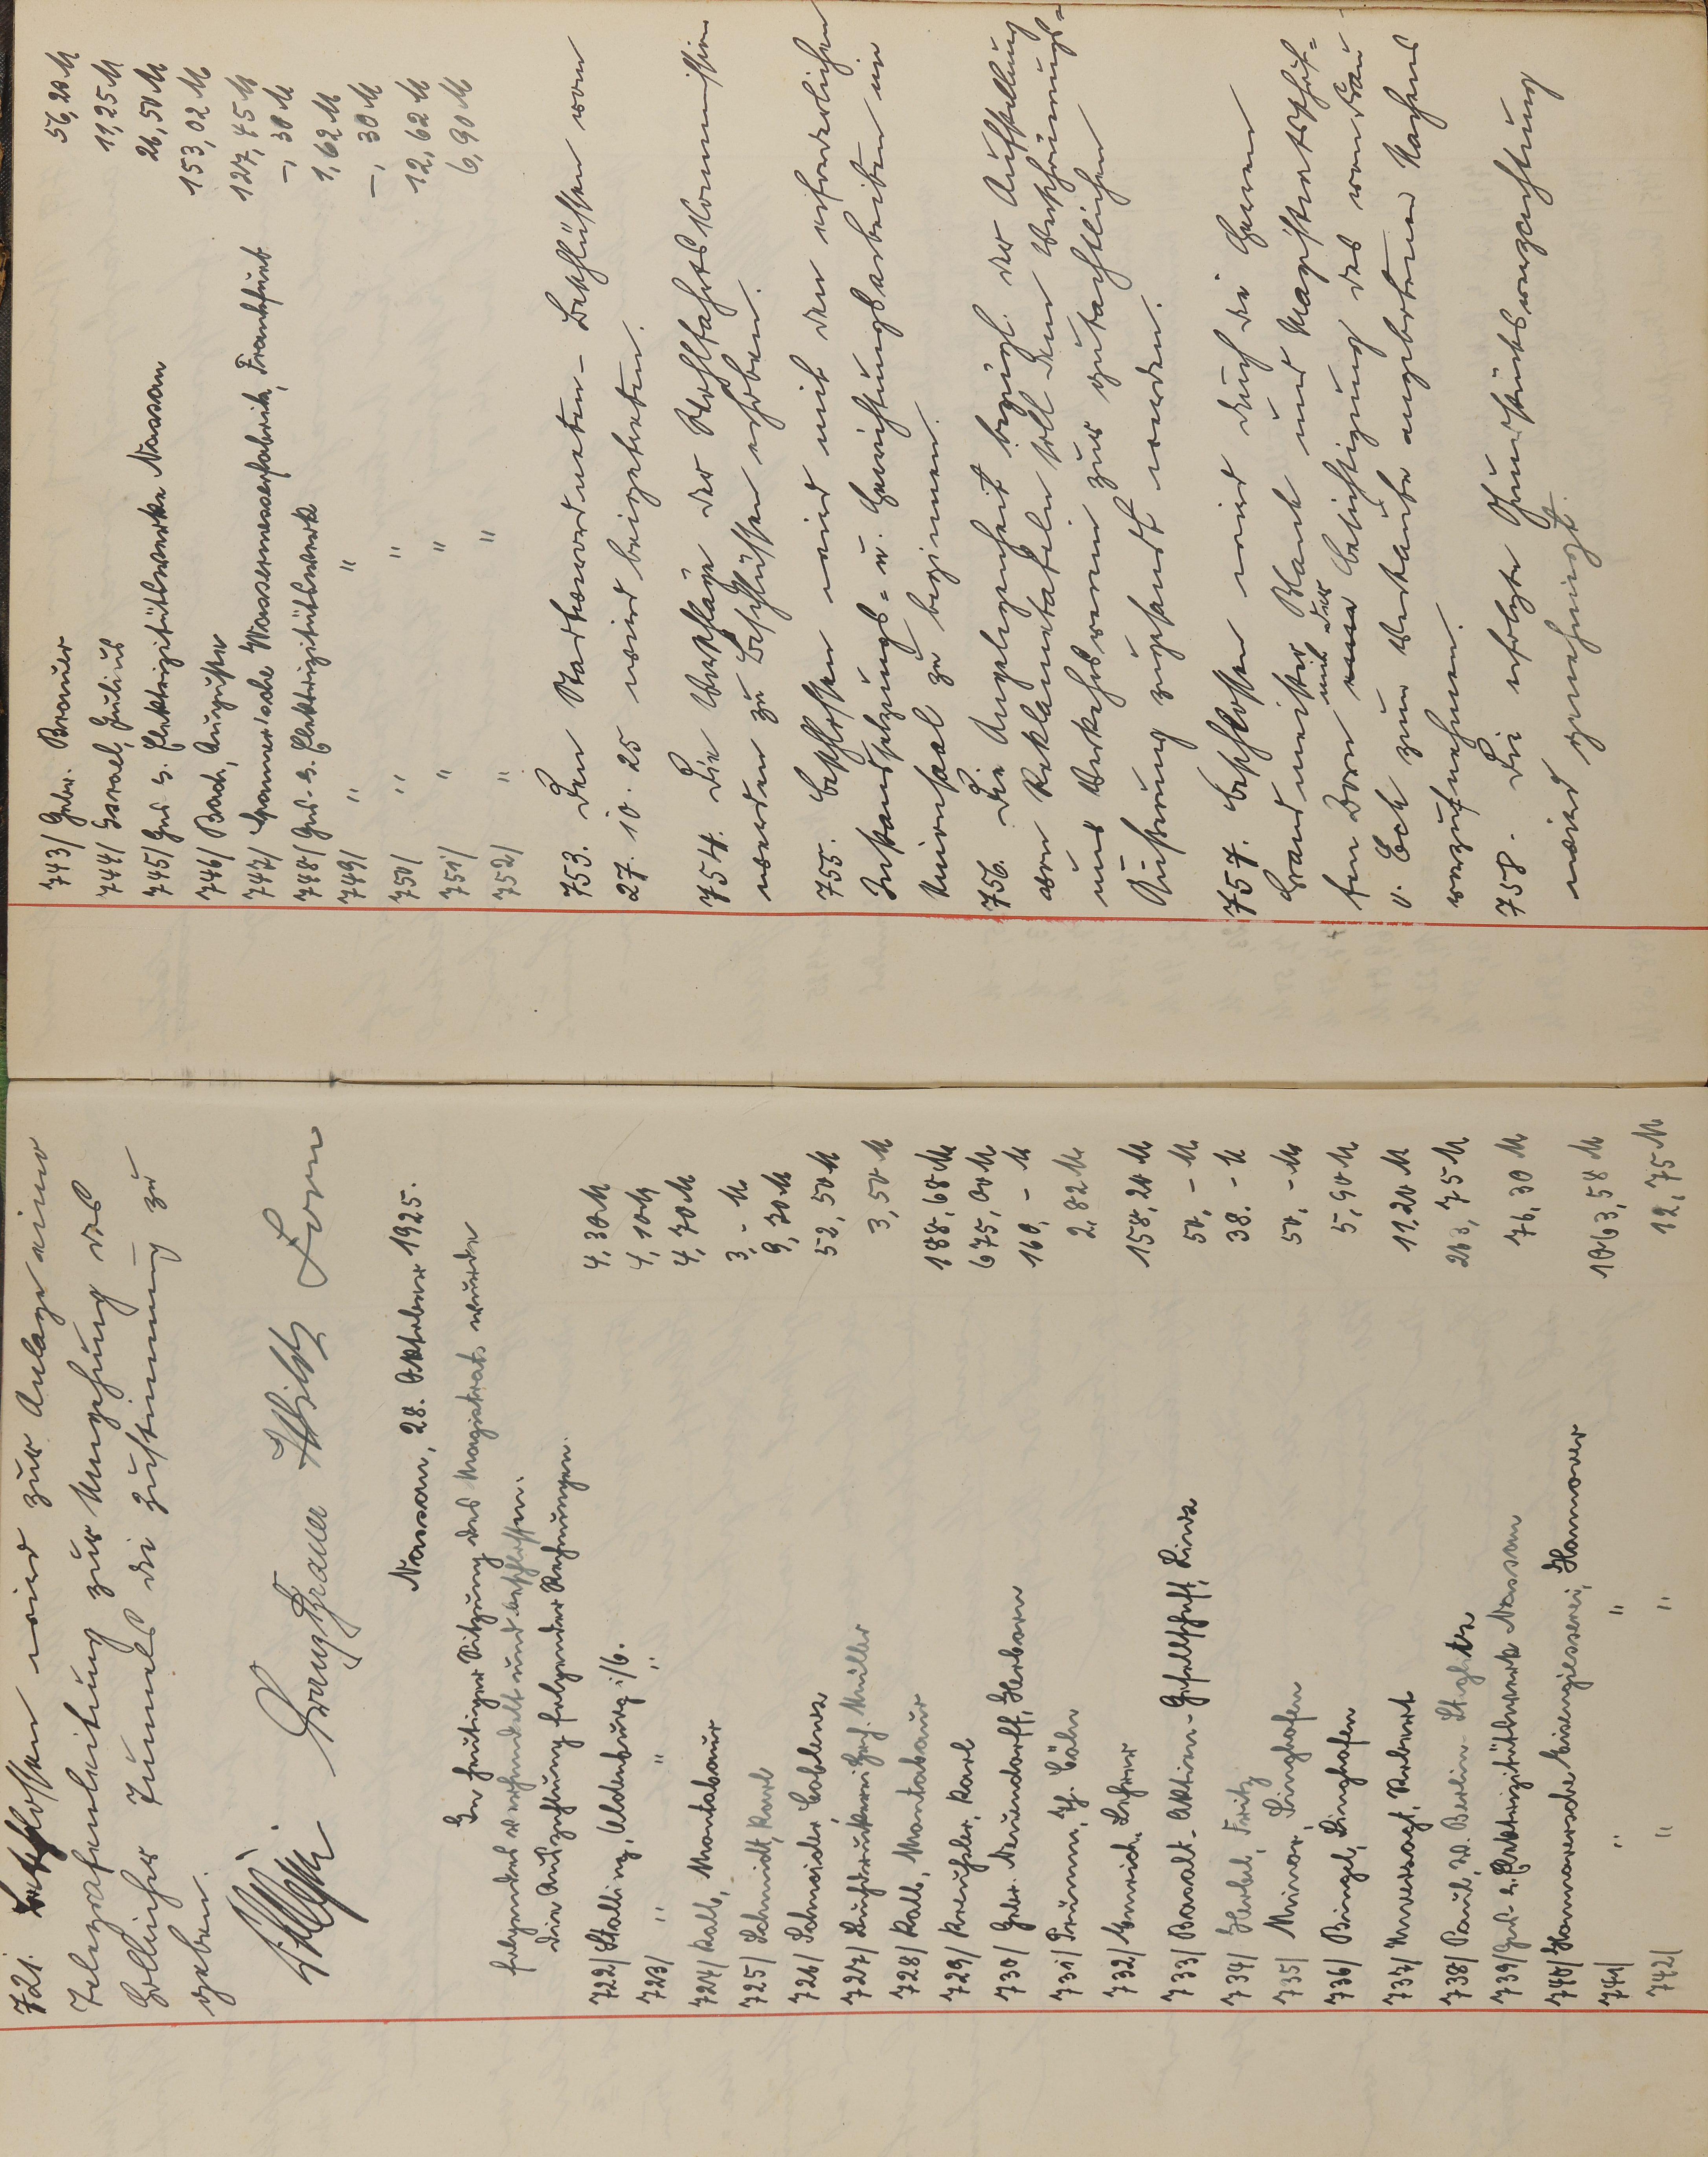 721. Beschlossen wird zur Anlage einer
Telegrafenleitung zur Umgehung des
Hollricher Tunnels die Zustimmung zu
geben.
Nassau, 28. Oktober 1925.
In heutiger Sitzung des Magistrats wurde
folgendes verhandelt und beschlossen.
Die Auszahlung folgender Rechnungen.
722/ Stalling, Oldenburg i/O. 4,30 M
723/ " " " 4,10 M
724/ Kalb, Montabaur 4,70 M
725/ Schmidt, Karl 3,- M
726/ Schneider, Coblenz 9,70 M
727/ Buchdruckerei Hch. Müller 52,50 M
728/ Kalb, Montabaur 3,50 M
729/ Kreuzler, Karl 188,68 M
730/ Gebr. Neuendorff, Herborn 675,00 M
731/ Prümm, Th. Cöln 160,- M
732/ Emrich, Lehrer 2,82 M
733/ Basalt-Aktien-Gesellschaft, Linz 158,20 M
734/ Herbel, Fritz 50,- M
735/ Minor, Singhofen 38.- M
736/ Bingel, Singhofen 50,- M
737/ Unverzagt, Robert 5,90 M
738/ Paul, W. Berlin-Steglitz 11,20 M
739/ Gas- u. Elektrizitätswerk Nassau 263,75 M
740/ Hannoversche Eisengiesserei, Hannover 76,30 M
741/ " " 1063,58 M
742/ " " 12,75 M
743/ Gebr. Brauer 56,20 M
744/ Israel, Julius 11,25 M
745/ Gas- u. Elektrizitätswerke Nassau 26,50 M
746/ Bach, Auguste 153,02 M
747/ Wassermesserfabrik, Frankfurt 127,45 M
748/ Gas- u. Elektrizitätswerk -,30 M
749/ " " 1,62 M
750/ " " -,30 M
751/ " " 12,62 M
752/ " " 6,90 M
753. Den Stadtverordneten-Beschlüssen vom
27. 10. 25 wird beigetreten.
754. Die Vorschläge der Wohlfahrtskommission
werden zu Beschlüssen erhoben.
755. Beschlossen wird mit den erforderlichen
Instandsetzungs- u. Herrichtungsarbeiten im
zu beginnen.
756. Die Angelegenheit bezügl. der Aufstellung
von Reklametafeln soll dem Verschönerungs-
und Verkehrsverein zur gutachtlichen
Äußerung zugesandt werden.
757. Beschlossen wird durch die Herren
Baumeister Blank und Magistratsschöf-
fen Dorn mit der Besichtigung des von Frau
v. Eck zum Verkaufe angebotenen Hauses
vorzunehmen.
758. Die erfolgte Grundstücksverpachtung
wird genehmigt.